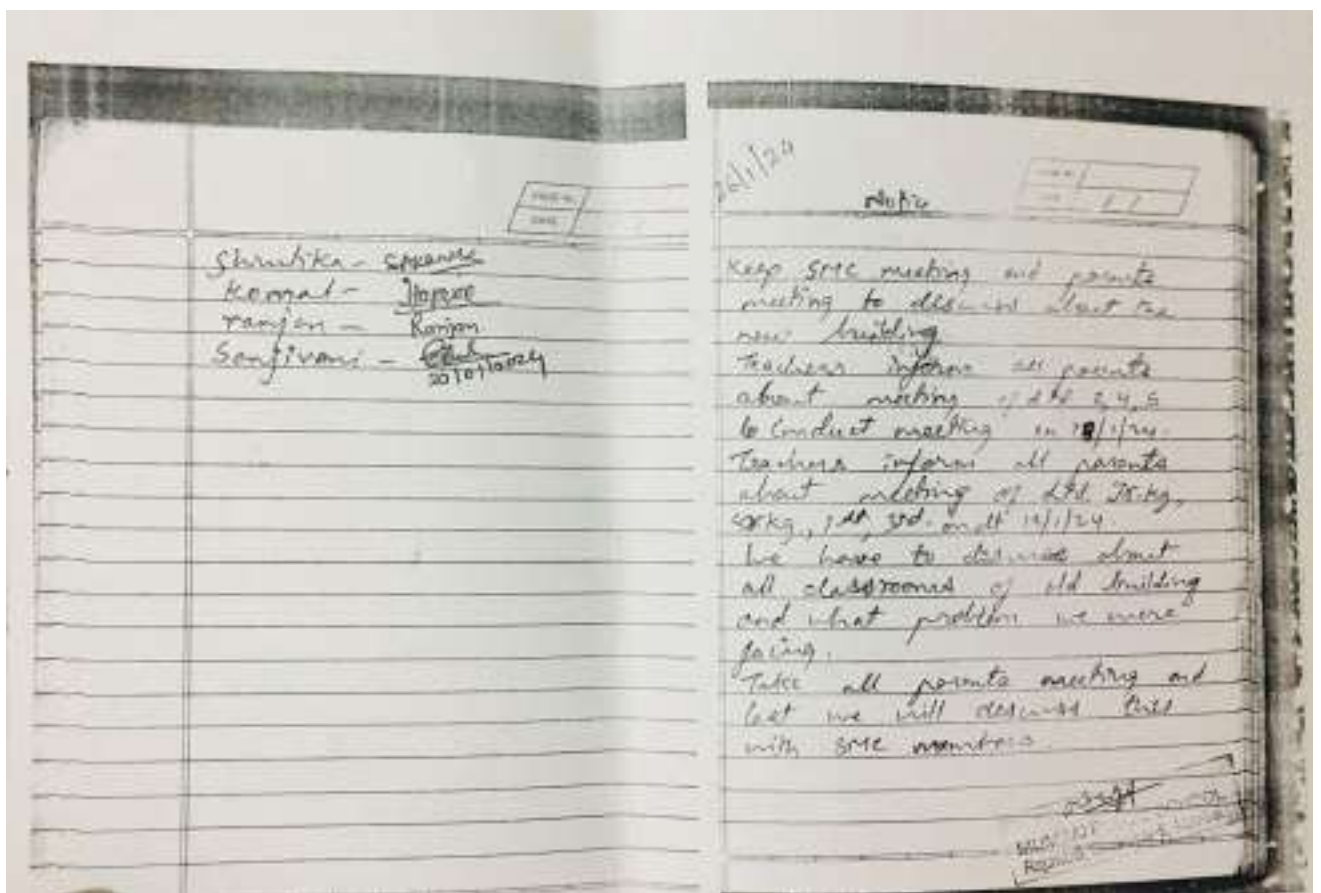 Shrutika -
Komal -
ranjan - Ranjan
Sanjivani -
20/01/2024
Notic
Keep SMC meeting and parents
meeting to descuss about the
new building
Teachers inform all parents
about meeting of std 2,4,5
to Conduct meeting on
Teachers inform all parents
about meeting of std. Jr.kg,
Sr.kg, 1st, 3rd. on dt 19/1/24.
We have to descuss about
all classrooms of old building
and what problem we were
facing.
Take all parents meeting and
last we will descuss this
with SMC members.